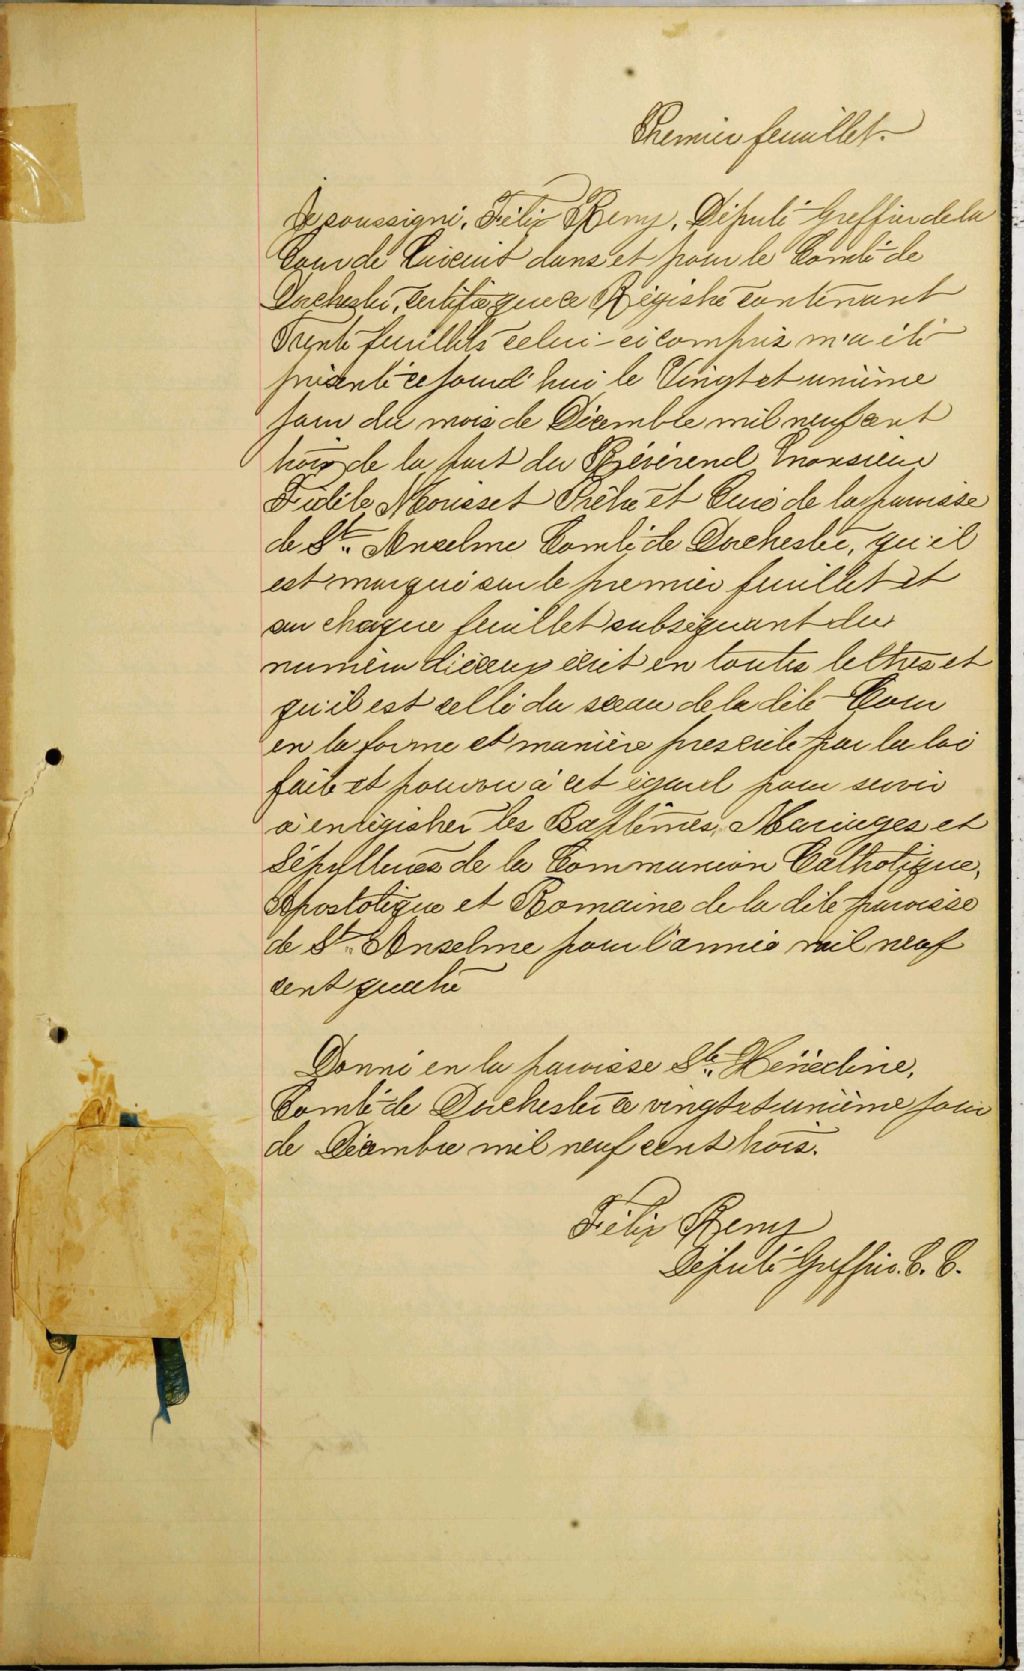 Premier feuillet.
Je soussigné, Félix Remy, Député-Greffier de la
Cour de Circuit dans et pour le Comté de
Dorchester, certifie que ce Régistre contenant
Trente feuillets celui-ci compris m'a été
présenté ce jourd'hui le Vingt et unième
jour du mois de Décembre mil neuf cent
trois de la part du Révérend Monsieur
Fidèle Morisset Prêtre et Curé de la paroisse
de St. Anselme Comté de Dorchester, qu'il
est marqué sur le premier feuillet et
sur chaque feuillet subséquant du
numéro écrit en toutes lettres et
qu'il est scellé du sceau de la dite Cour
en la forme et manière prescrite par la loi
faite et pourvu à cet égard pour servir
à enrégistrer les Baptêmes, Mariages et
Sépultures de la Communion Catholique,
Apostolique et Romaine de la dite paroisse
de St. Anselme pour l'année mil neuf
cent quatre
Donné en la paroisse Ste. Hénédine,
Comté de Dorchester ce vingt et unième jour
de Décembre mil neuf cent trois.
Félix Remy
Député-Greffier C. C.